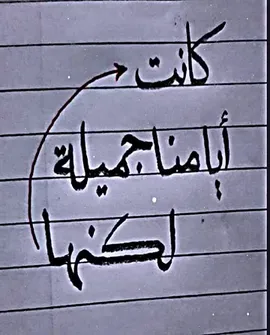 كانت
أيامنا جميلة
لكنها